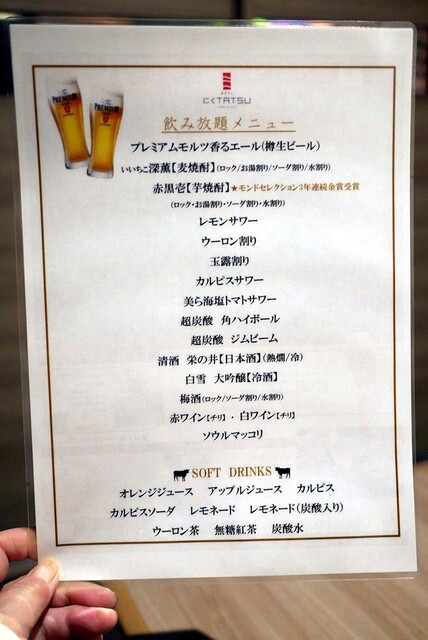 にくTATSU
飲み放題メニュー
プレミアムモルツ香るエール(樽生ビール)
いいちこ深薫【麦焼酎】(ロック/お湯割り/ソーダ割り/水割り)
赤黒壱【芋焼酎】★モンドセレクション3年連続金賞受賞
(ロック・お湯割り・ソーダ割り・水割り)
レモンサワー
ウーロン割り
玉露割り
カルピスサワー
美ら海塩トマトサワー
超炭酸 角ハイボール
超炭酸 ジムビーム
清酒 栄の井【日本酒】(熱燗/冷)
白雪 大吟醸【冷酒】
梅酒(ロック/ソーダ割り/水割り)
赤ワイン【チリ】・白ワイン【チリ】
ソウルマッコリ
SOFT DRINKS
オレンジジュース アップルジュース カルピス
カルピスソーダ レモネード レモネード(炭酸入り)
ウーロン茶 無糖紅茶 炭酸水